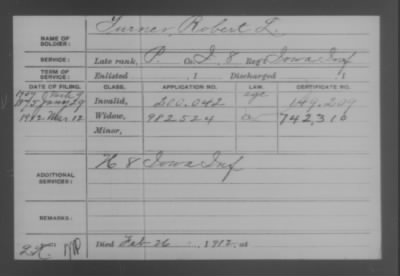 NAME OF SOLDIER: Turner, Robert L.
SERVICE: Late rank, P. Co. I, 8 Reg't Iowa Inf
TERM OF SERVICE: Enlisted , 1 Discharged , 1
DATE OF FILING. CLASS. APPLICATION NO. LAW. CERTIFICATE NO.
1907 age
1875 Invalid, 200.042 149.209
1912 Mar 12 Widow, 982524 742,310
Minor,
ADDITIONAL SERVICES: K 8 Iowa Inf
REMARKS:
Died Feb 26 , 1912, at